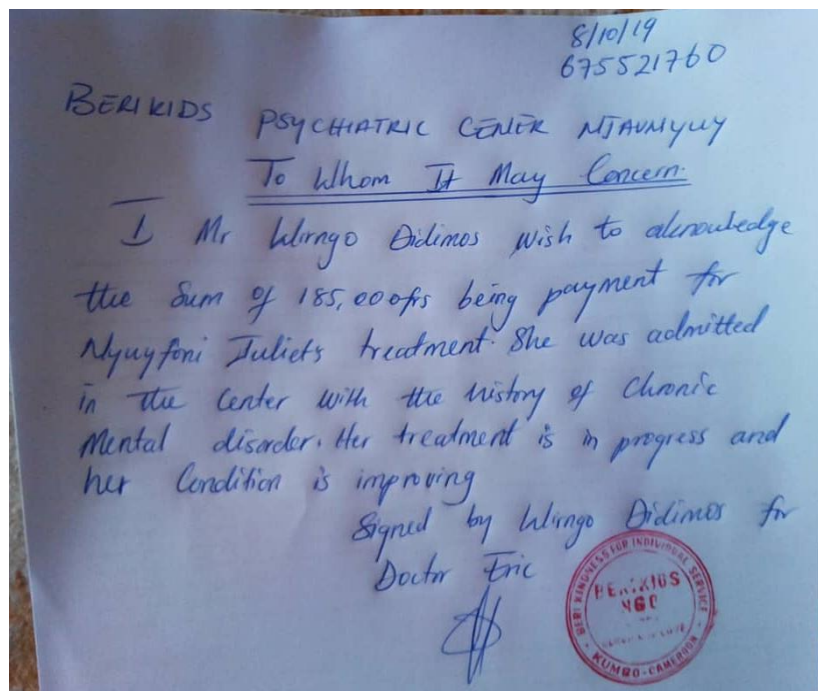 8/10/19
675521760
BERIKIDS PSYCHIATRIC CENER NJAVNYUY
To Whom It May Concern.
I Mr Wirngo Didimos wish to aknowledge
the Sum of 185,000frs being payment for
Nyuyfoni Juliet's treatment. She was admitted
in the Center with the history of Chronic
Mental disorder. Her treatment is in progress and
her Condition is improving
Signed by Wirngo Didimos for
Doctor Eric
BERI KINDNESS FOR INDIVIDUAL SERVICE
BERIKIDS
NGO
KUMBO-CAMEROON